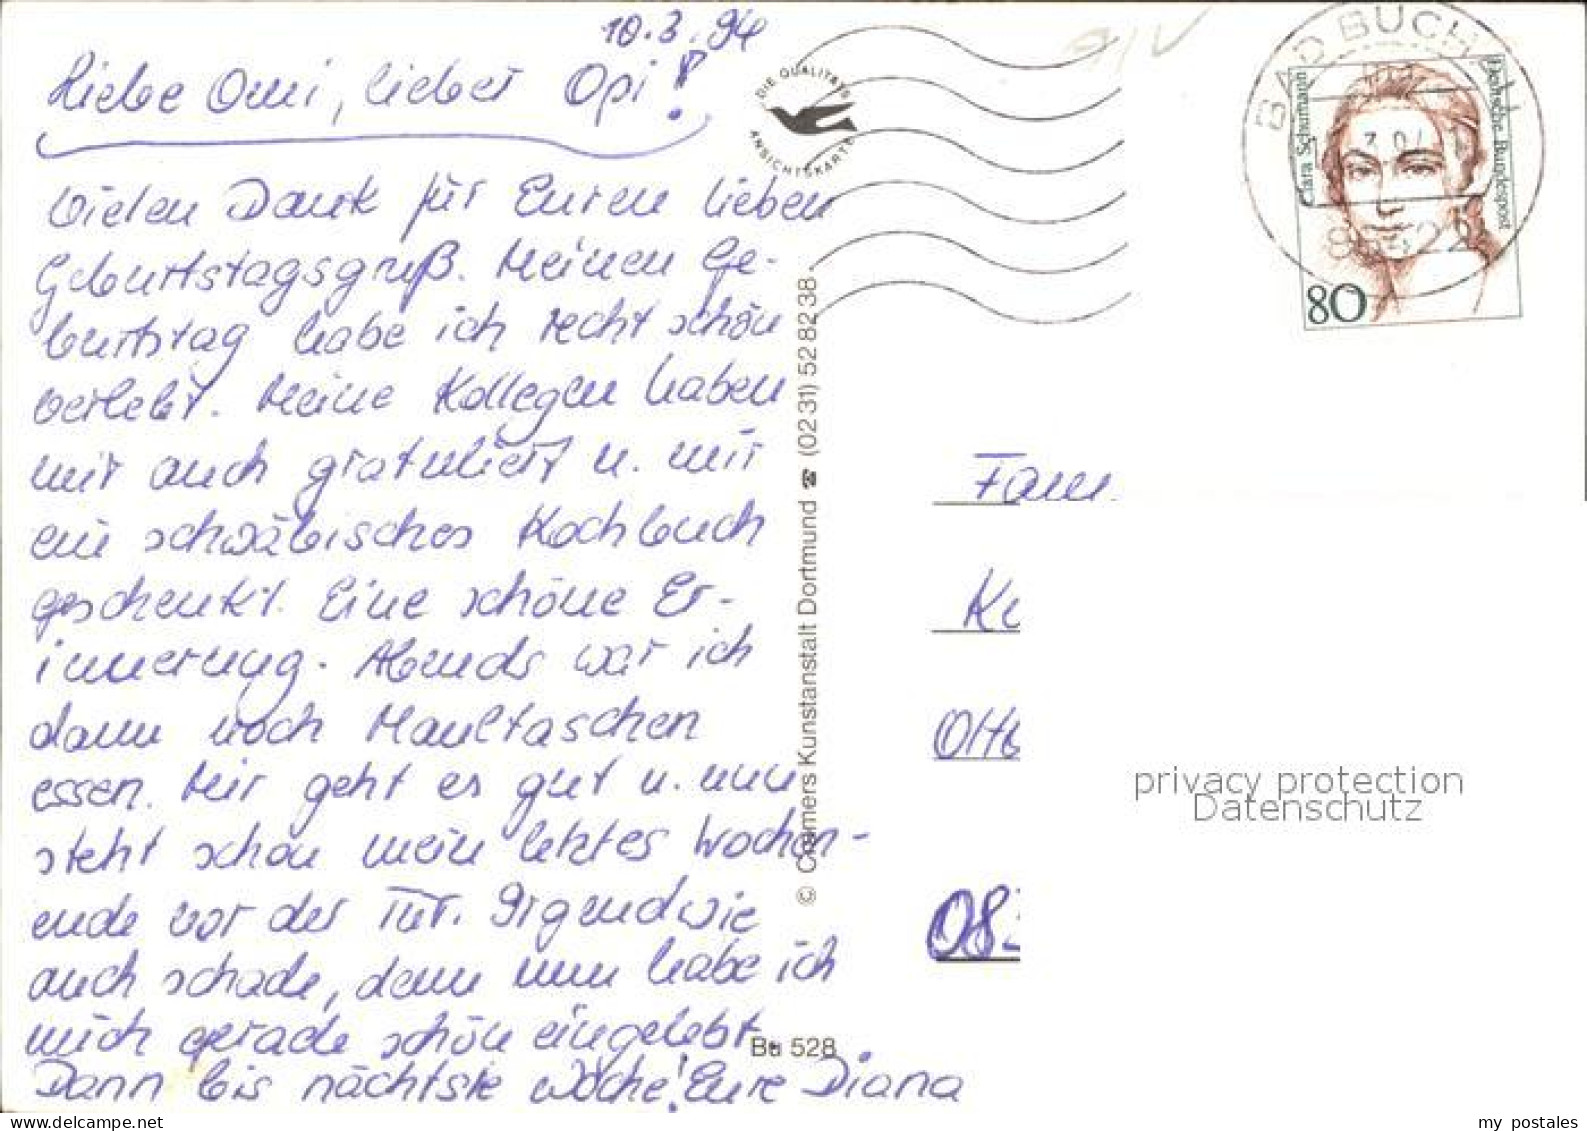 10.3.94
Liebe Omi, lieber Opi!
Vielen Dank für Euren lieben
Geburtstagsgruß. Meinen Ge-
burtstag habe ich recht schön
verlebt. Meine Kollegen haben
mir auch gratuliert u. mir
ein schwäbisches Kochbuch
geschenkt. Eine schöne Er-
innerung. Abends war ich
dann noch Maultaschen
essen. Mir geht es gut u. nun
steht schon mein letztes Wochen-
ende vor der Tür. Irgendwie
auch schade, denn nun habe ich
mich gerade schön eingelebt.
Dann bis nächste Woche! Eure Diana
DIE QUALITÄTS
ANSICHTSKARTE
© Cramers Kunstanstalt Dortmund ☎ (02 31) 52 82 38
Bu 528
BAD BUCHAU
88422
Clara Schumann
Deutsche Bundespost
80
Fam.
privacy protection
Datenschutz
my postales